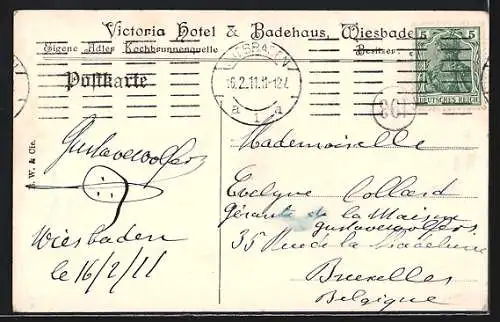 Victoria Hotel & Badehaus, Wiesbaden
Eigene Adler Kochbrunnenquelle
Besitzer:
Postkarte
WIESBADEN
16.2.11.11-12V.
* 1 a
5 5
DEUTSCHES REICH
B. W. & Cie.
Gustave Wolfers
Wiesbaden
le 16/2/11
Mademoiselle
Evelyne Collard
Gérante de la Maison
Gustave Wolfers.
35 Rue de la Madeleine
Bruxelles
Belgique